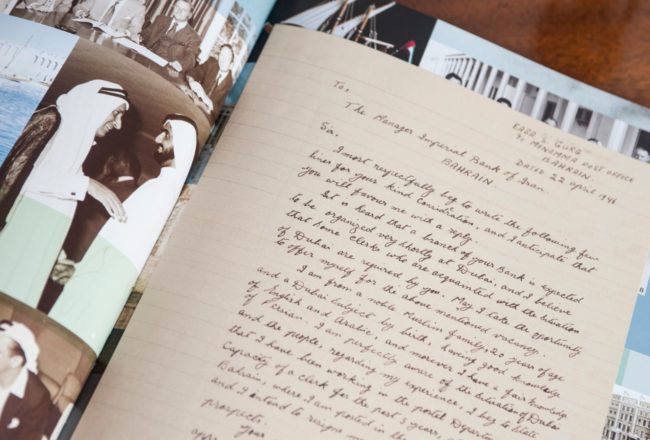 To,
The Manager Imperial Bank of Iran.
BAHRAIN.
EASA S. GURG
C/o MENAMMA POST OFFICE
BAHRAIN.
DATED 22 april 1946
Sir,
I most respectfully beg to write the following few
lines for your kind consideration, and I anticipate that
you will favour me with a reply.
It is heard that a branch of your Bank is expected
to be organized very shortly at Dubai, and I believe
that some Clerks who are acquainted with the situation
of Dubai are required by you. May I take the opportunity
to offer myself for the above mentioned vacancy.
I am from a noble Muslim family, 20 years of age
and a Dubai subject by birth, having good knowledge
of English and Arabic, and moreover I have a fair knowledge
of Persian. I am perfectly aware of the situation of Dubai
and the people, regarding my experience, I beg to state
that I have been working in the postal Depart
Capacity of a clerk for the past 3 years,
Bahrain, where I am posted in the
and I intend to resign m
prospects.
your
appr